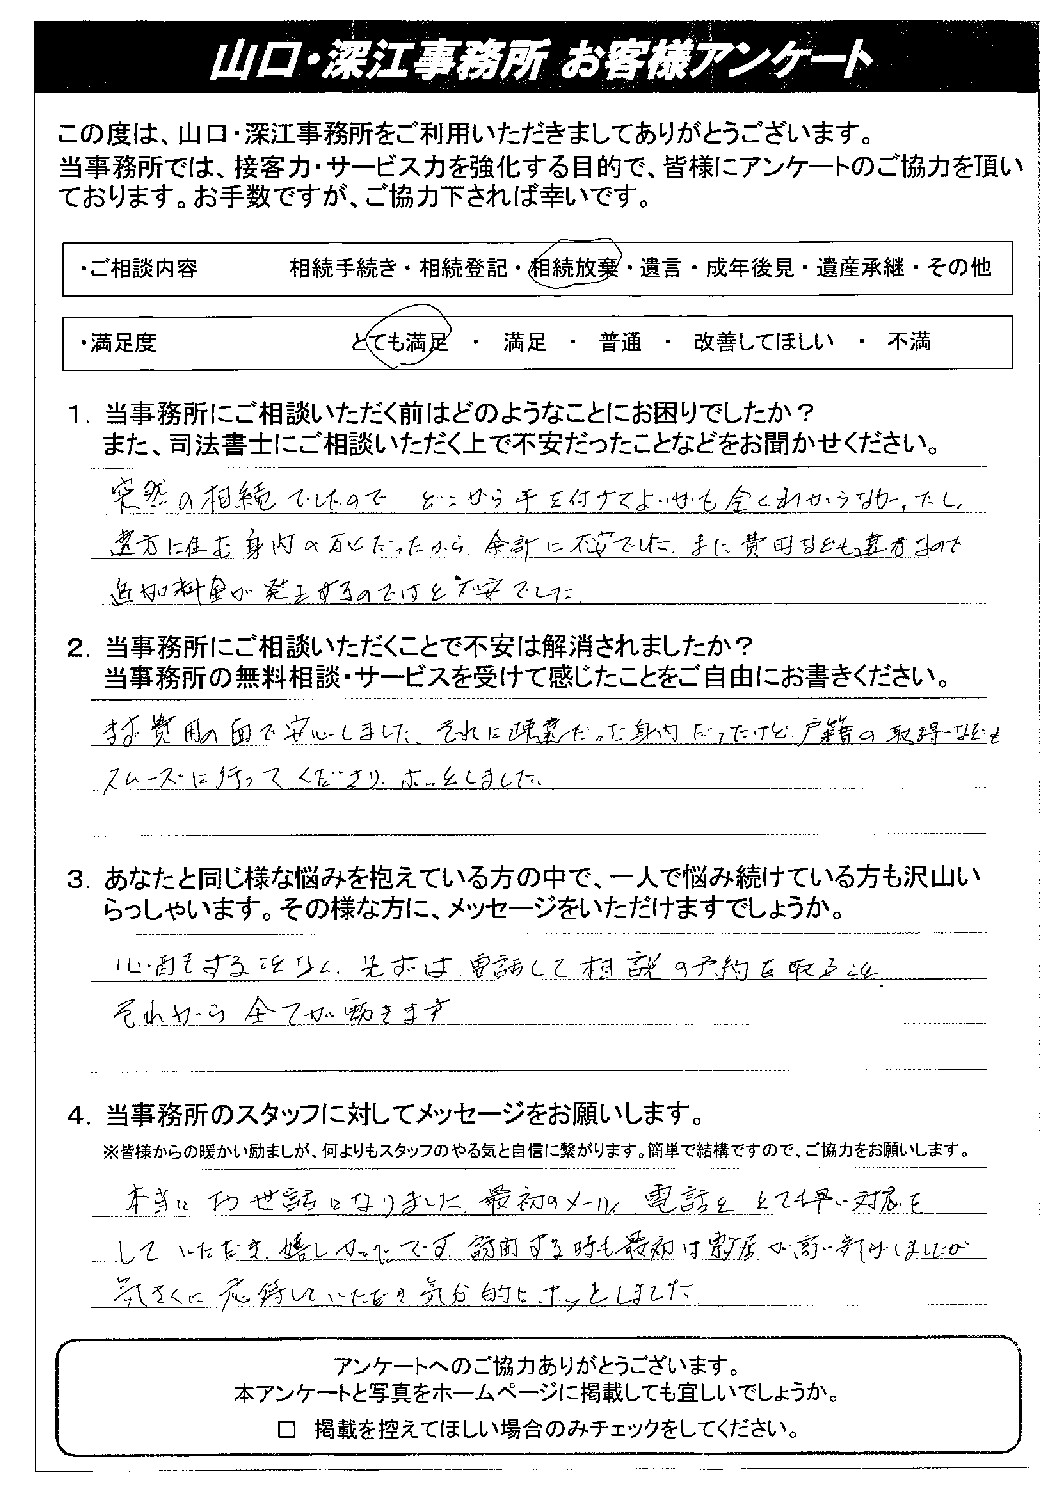 山口・深江事務所 お客様アンケート
この度は、山口・深江事務所をご利用いただきましてありがとうございます。
当事務所では、接客力・サービス力を強化する目的で、皆様にアンケートのご協力を頂い
ております。お手数ですが、ご協力下されば幸いです。
・ご相談内容 相続手続き・相続登記・相続放棄・遺言・成年後見・遺産承継・その他
・満足度 とても満足 ・ 満足 ・ 普通 ・ 改善してほしい ・ 不満
1. 当事務所にご相談いただく前はどのようなことにお困りでしたか？
また、司法書士にご相談いただく上で不安だったことなどをお聞かせください。
突然の相続でしたので どこから手を付けてよいかも全くわからなかったし、
遠方に住む身内のことだったから 余計に不安でした。また費用なども遠方なので
追加料金が発生するのではと不安でした
2. 当事務所にご相談いただくことで不安は解消されましたか？
当事務所の無料相談・サービスを受けて感じたことをご自由にお書きください。
まず費用の面で安心しました。それに疎遠だった身内だったけど戸籍の取得なども
スムーズに行ってくださり、ホッとしました。
3. あなたと同じ様な悩みを抱えている方の中で、一人で悩み続けている方も沢山い
らっしゃいます。その様な方に、メッセージをいただけますでしょうか。
心配をすることなく、先ずは電話して相談の予約を取ること
それから全てが動きます
4. 当事務所のスタッフに対してメッセージをお願いします。
※皆様からの暖かい励ましが、何よりもスタッフのやる気と自信に繋がります。簡単で結構ですので、ご協力をお願いします。
本当にお世話になりました 最初のメール、電話と とても早い対応を
していただき、嬉しかったです。訪問する時も最初は敷居が高い気がしましたが
気さくに応対していただき気分的にホッとしました
アンケートへのご協力ありがとうございます。
本アンケートと写真をホームページに掲載しても宜しいでしょうか。
□ 掲載を控えてほしい場合のみチェックをしてください。